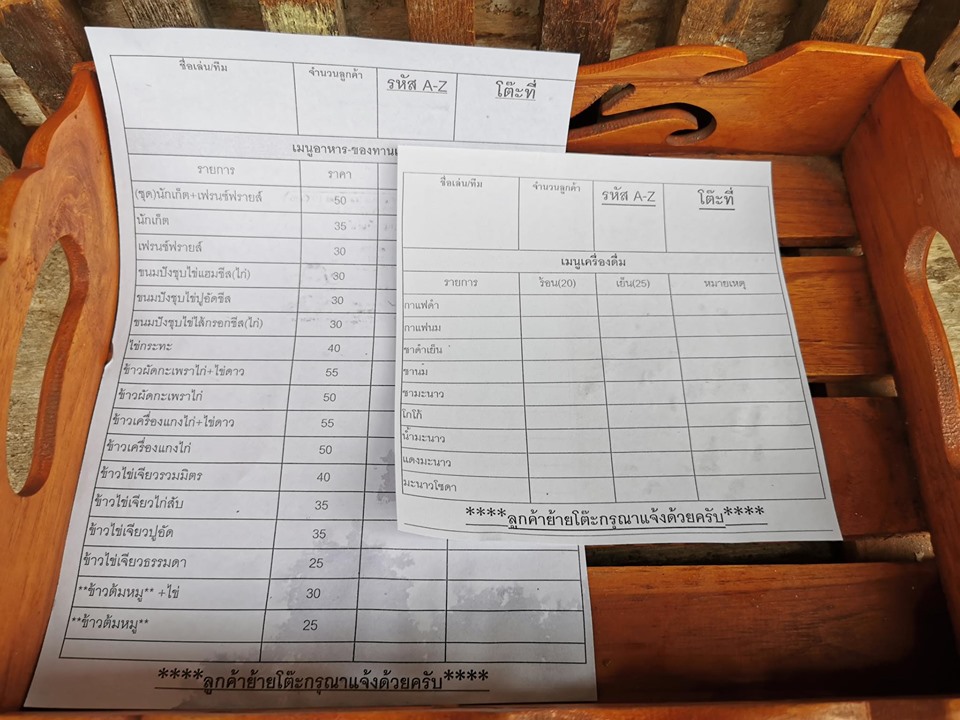 ชื่อเล่น/ทีม จำนวนลูกค้า รหัส A-Z โต๊ะที่
เมนูอาหาร-ของทาน
รายการ ราคา
(ชุด)นักเก็ต+เฟรนซ์ฟรายส์ 50
นักเก็ต 35
เฟรนซ์ฟรายส์ 30
ขนมปังชุบไข่แฮมชีส(ไก่) 30
ขนมปังชุบไข่ปูอัดชีส 30
ขนมปังชุบไข่ไส้กรอกชีส(ไก่) 30
ไข่กระทะ 40
ข้าวผัดกะเพราไก่+ไข่ดาว 55
ข้าวผัดกะเพราไก่ 50
ข้าวเครื่องแกงไก่+ไข่ดาว 55
ข้าวเครื่องแกงไก่ 50
ข้าวไข่เจียวรวมมิตร 40
ข้าวไข่เจียวไก่สับ 35
ข้าวไข่เจียวปูอัด 35
ข้าวไข่เจียวธรรมดา 25
**ข้าวต้มหมู** +ไข่ 30
**ข้าวต้มหมู** 25
****ลูกค้าย้ายโต๊ะกรุณาแจ้งด้วยครับ****
ชื่อเล่น/ทีม จำนวนลูกค้า รหัส A-Z โต๊ะที่
เมนูเครื่องดื่ม
รายการ ร้อน(20) เย็น(25) หมายเหตุ
กาแฟดำ
กาแฟนม
ชาดำเย็น
ชานม
ชามะนาว
โกโก้
น้ำมะนาว
แดงมะนาว
มะนาวโซดา
****ลูกค้าย้ายโต๊ะกรุณาแจ้งด้วยครับ****